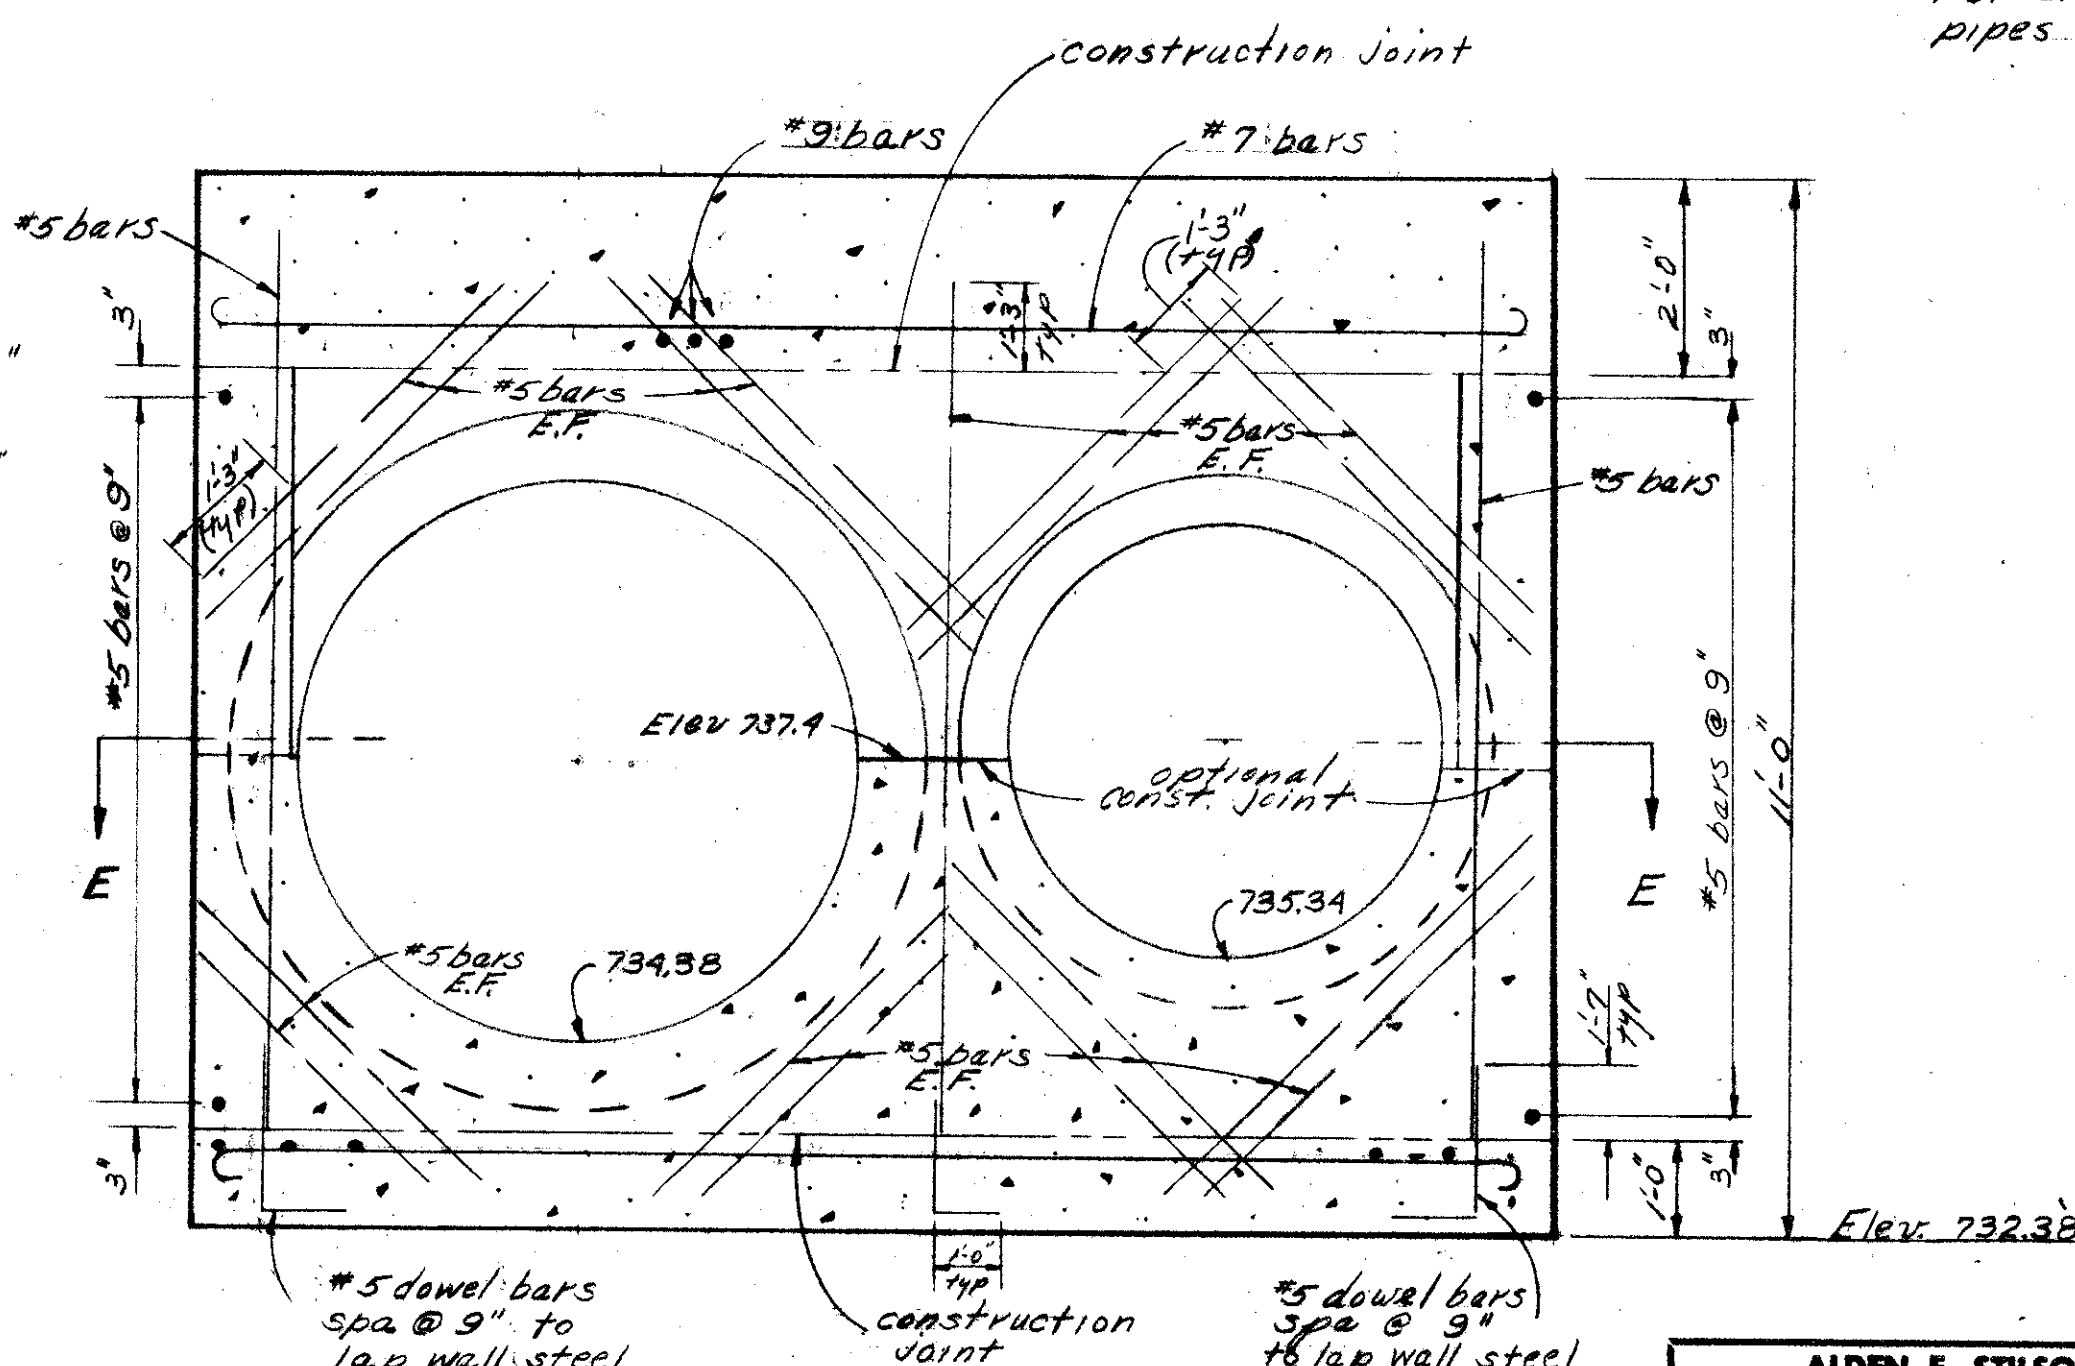 pipes
construction joint
#9 bars
#7 bars
#5 bars
1'-3"
(typ)
2'-0"
3"
3"
1'-3"
typ
#5 bars
E.F.
#5 bars
E.F.
#5 bars
1'-3"
(typ)
#5 bars @ 9"
#5 bars @ 9"
11'-0"
Elev 737.4
optional
const. joint
E
E
735.34
#5 bars
E.F.
734.38
#5 bars
E.F.
1'-7"
typ
3"
1'-0"
3"
Elev. 732.38
1'-0"
typ
#5 dowel bars
spa @ 9" to
lap wall steel
construction
joint
#5 dowel bars
spa @ 9"
to lap wall steel